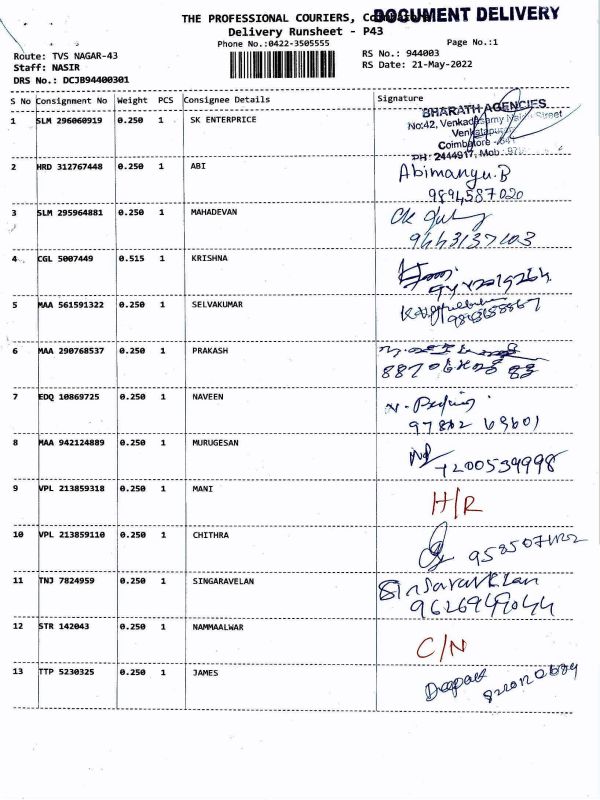 DOCUMENT DELIVERY
THE PROFESSIONAL COURIERS,
Delivery Runsheet - P43
Phone No.:0422-3505555 Page No.:1
Route: TVS NAGAR-43 RS No.: 944003
Staff: NASIR RS Date: 21-May-2022
DRS No.: DCJB94400301
S No Consignment No Weight PCS Consignee Details Signature
1 SLM 296060919 0.250 1 SK ENTERPRICE
BHARATH AGENCIES
No:42, Street
Coimbatore
PH: 2444917, Mob
2 HRD 312767448 0.250 1 ABI Abimanyu.B
9894587020
3 SLM 295964881 0.250 1 MAHADEVAN
9443137203
4 CGL 5007449 0.515 1 KRISHNA
5 MAA 561591322 0.250 1 SELVAKUMAR
6 MAA 290768537 0.250 1 PRAKASH
7 EDQ 10869725 0.250 1 NAVEEN
8 MAA 942124889 0.250 1 MURUGESAN
7200539998
9 VPL 213859318 0.250 1 MANI H/R
10 VPL 213859110 0.250 1 CHITHRA
11 TNJ 7824959 0.250 1 SINGARAVELAN
12 STR 142043 0.250 1 NAMMAALWAR C/N
13 TTP 5230325 0.250 1 JAMES Deepak